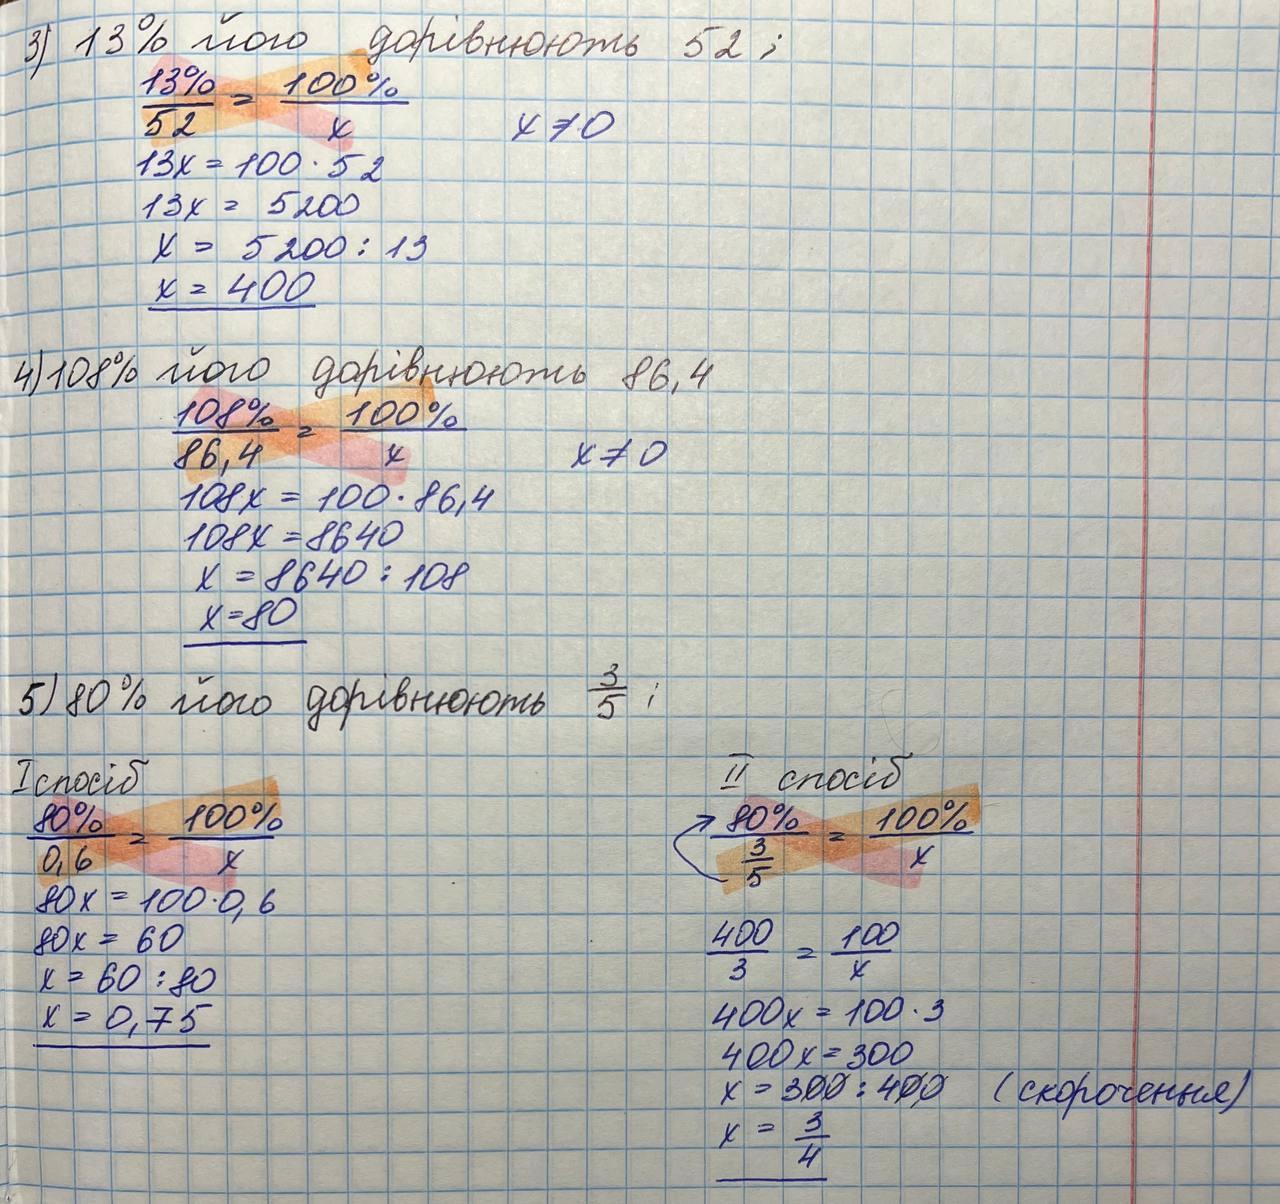 3) 13% його дорівнюють 52;
13%/52 = 100%/x x≠0
13x = 100·52
13x = 5200
x = 5200:13
x = 400
4) 108% його дорівнюють 86,4
108%/86,4 = 100%/x x≠0
108x = 100·86,4
108x = 8640
x = 8640:108
x = 80
5) 80% його дорівнюють 3/5;
I спосіб
80%/0,6 = 100%/x
80x = 100·0,6
80x = 60
x = 60:80
x = 0,75
II спосіб
80%/(3/5) = 100%/x
400/3 = 100/x
400x = 100·3
400x = 300
x = 300:400 (скорочення)
x = 3/4